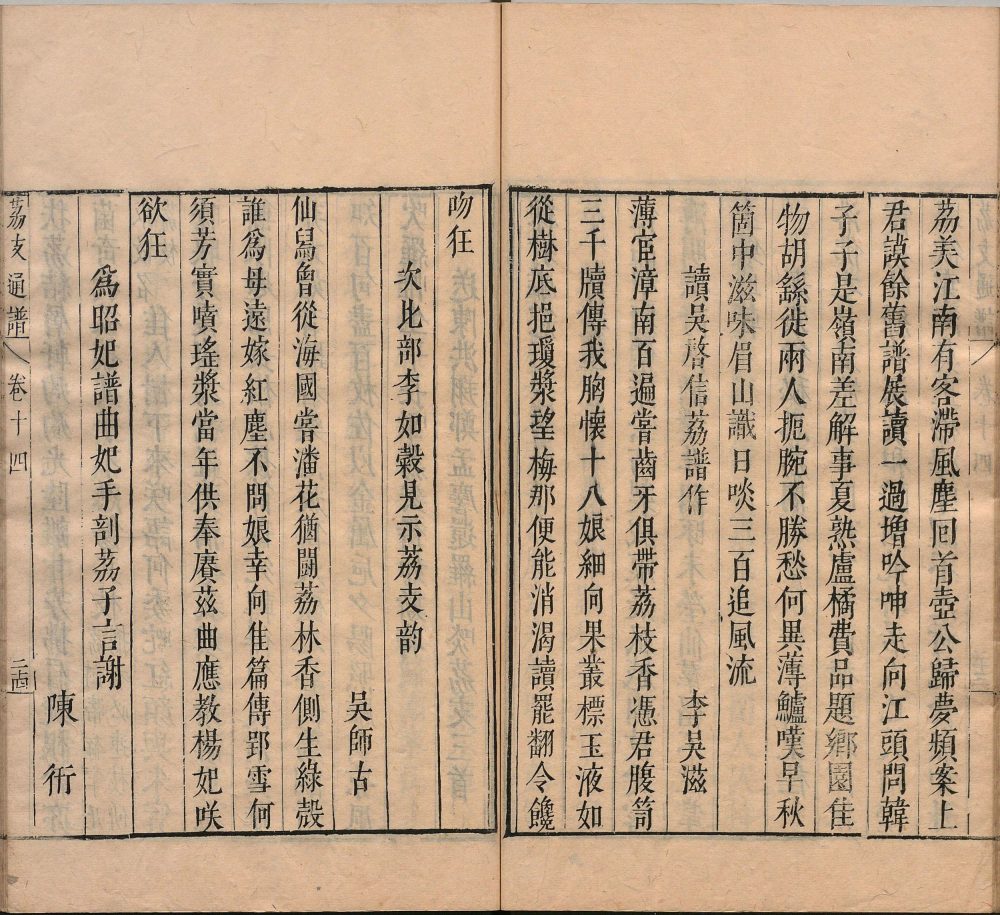 荔美江南有客滯風塵回首壺公歸夢頻案上
君謨餘舊譜展讀一過增吟呻走向江頭問韓
子子是嶺南差解事夏熟盧橘費品題鄉園佳
物胡繇徙兩人扼腕不勝愁何異薄鱸嘆早秋
箇中滋味眉山識日啖三百追風流
讀吳啓信荔譜作
李吳滋
薄宦漳南百遍嘗齒牙俱帶荔枝香憑君腹笥
三千牘傳我胸懷十八娘細向果叢標玉液如
從樹底挹瓊漿望梅那便能消渴讀罷翻令饞
吻狂
次比部李如榖見示荔支韵
吳師古
仙舄曾從海國嘗潘花猶鬪荔林香側生綠殼
誰爲母遠嫁紅塵不問娘幸向佳篇傳郢雪何
須芳實噴瑤漿當年供奉賡茲曲應教楊妃咲
欲狂
爲昭妃譜曲妃手剖荔子言謝
陳衎
荔支通譜
卷十四
二十四